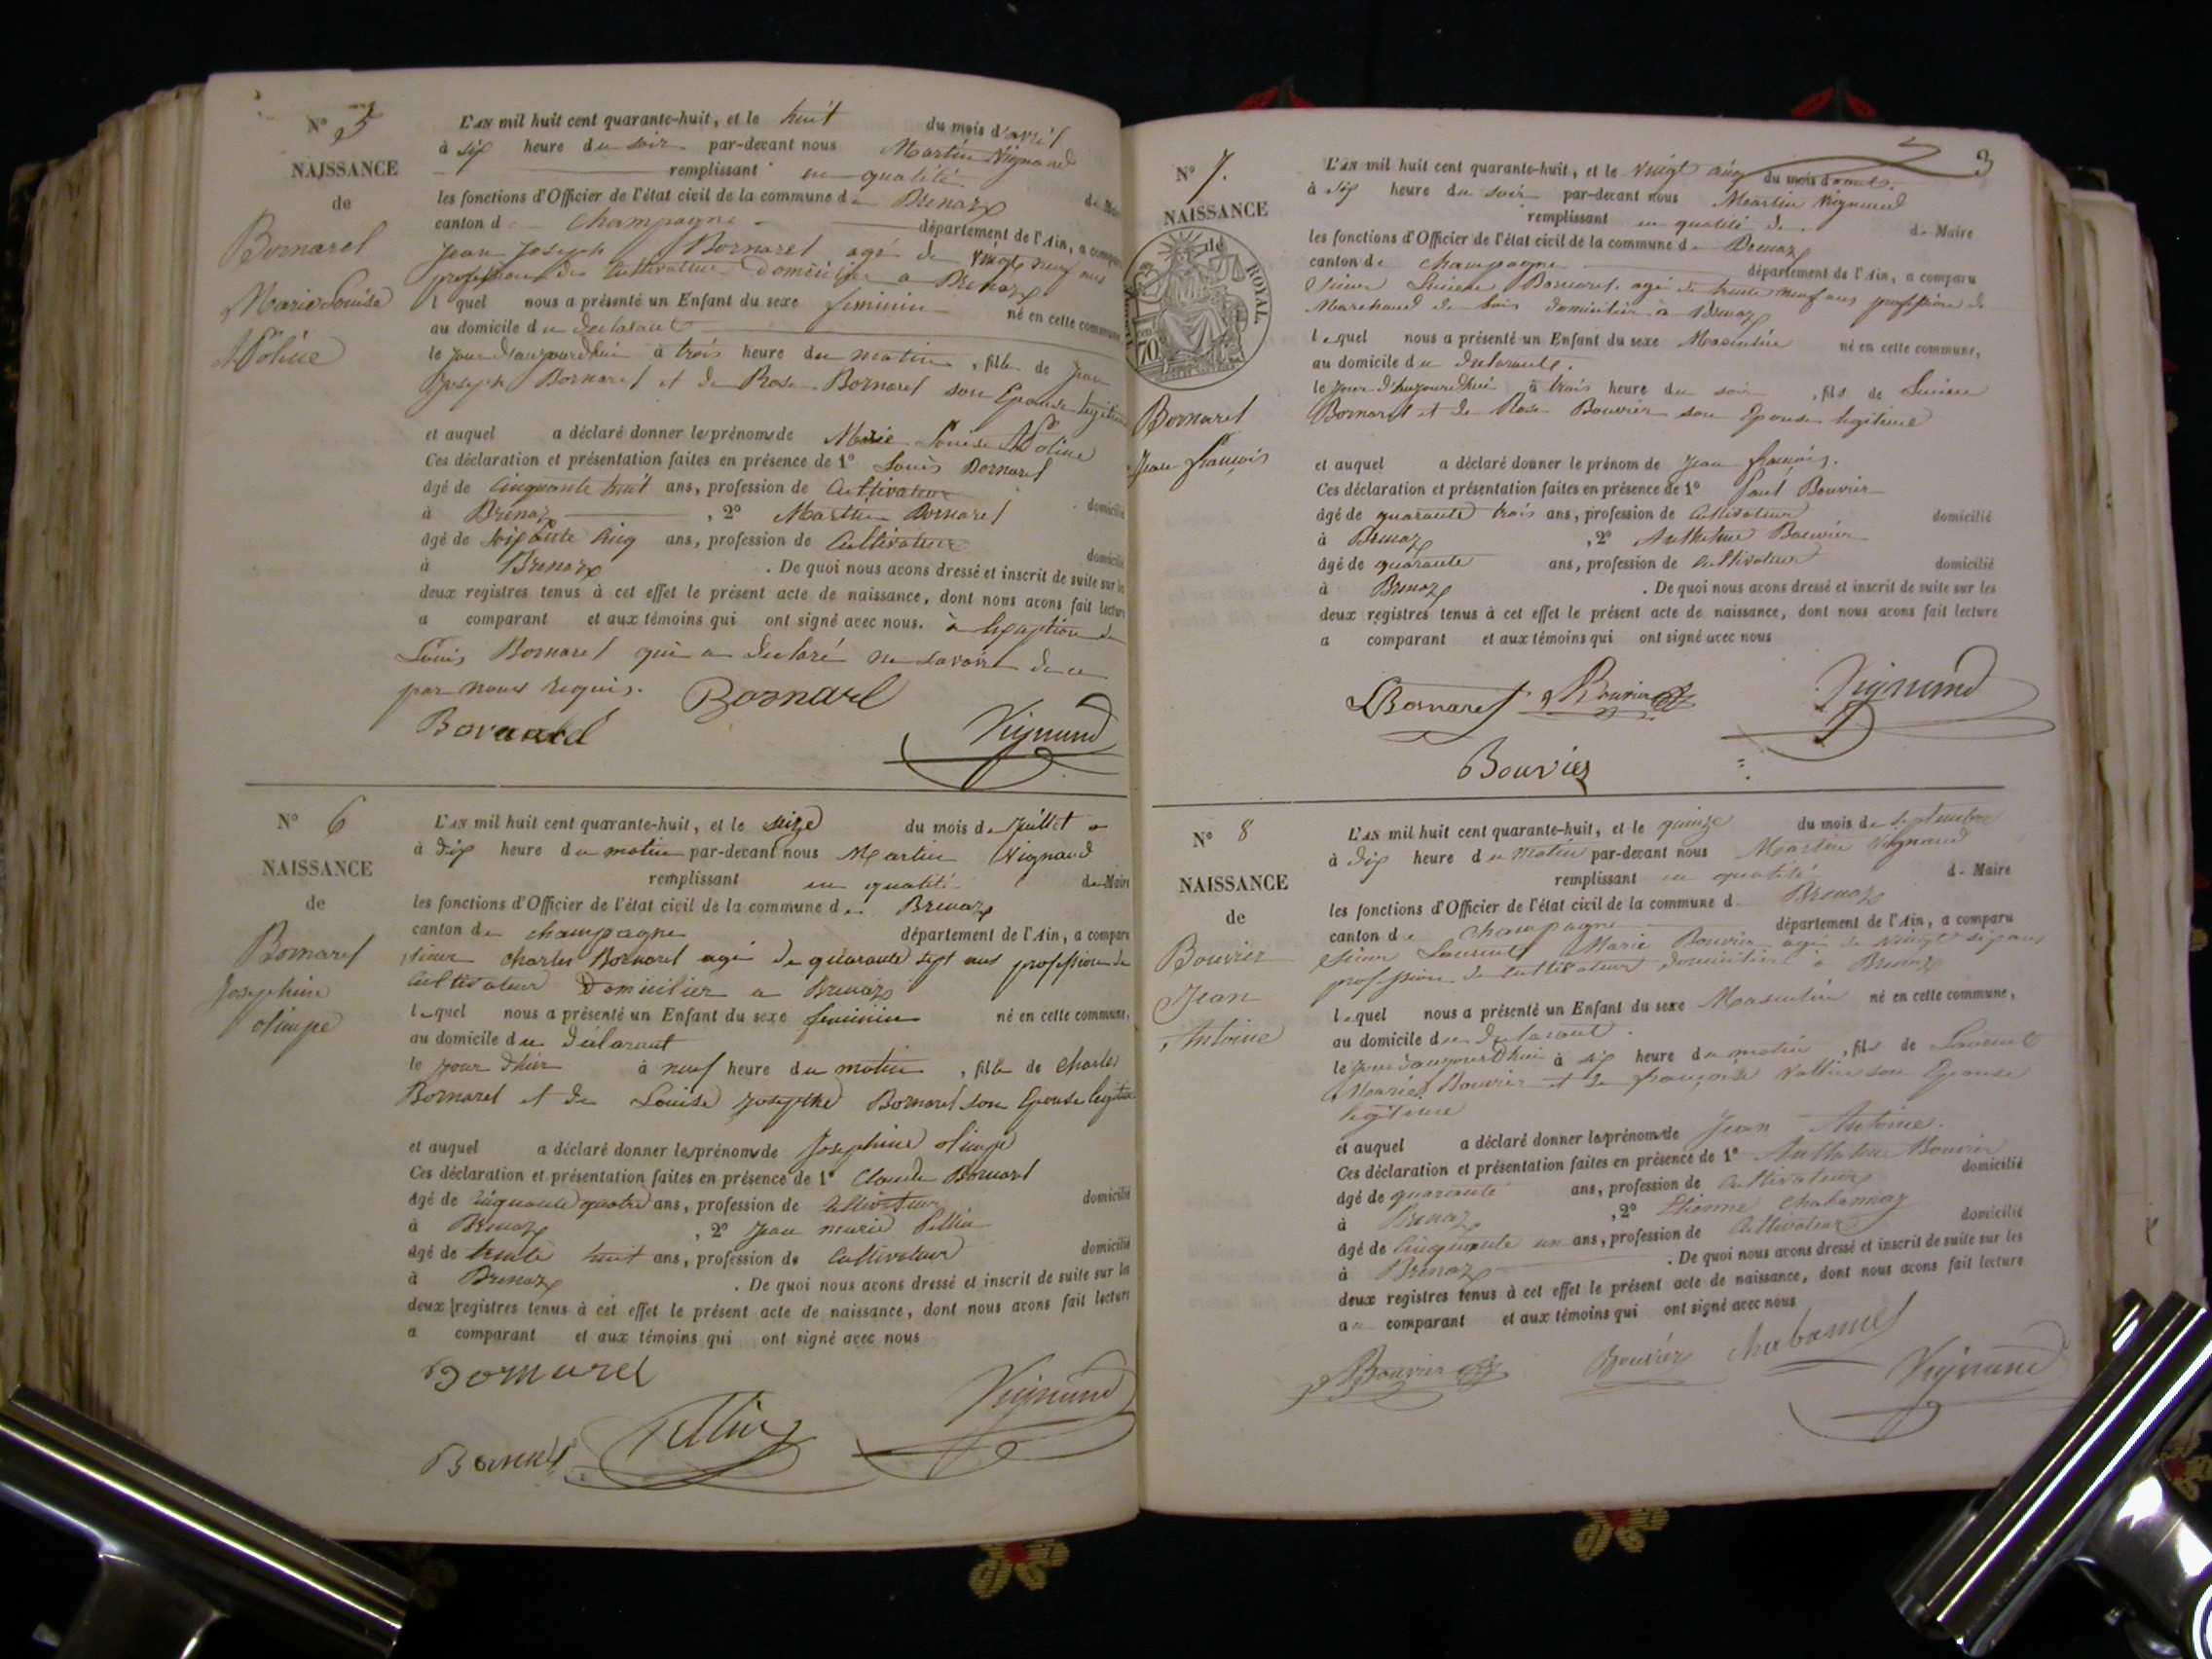 N° 5
NAISSANCE
de
Bornarel
Marie Louise
Apoline
L'AN mil huit cent quarante-huit, et le huit du mois d'avril
à six heure du soir par-devant nous Martin Vignand
remplissant en qualité de Maire
les fonctions d'Officier de l'état civil de la commune de Brenaz
canton de Champagne département de l'Ain, a comparu
Jean Joseph Bornarel agé de vingt neuf ans
profession de Cultivateur domicilier a Brenaz
lequel nous a présenté un Enfant du sexe feminin né en cette commune,
au domicile du declarant
le jour d'aujourdhui à trois heure du matin, fille de Jean
Joseph Bornarel et de Rose Bornarel son Epouse legitime
et auquel a déclaré donner les prénoms de Marie Louise Apoline
Ces déclaration et présentation faites en présence de 1° Louis Bornarel
âgé de cinquante huit ans, profession de Cultivateur domicilié
à Brenaz, 2° Marthin Bornarel
âgé de soixante cinq ans, profession de Cultivateur domicilié
à Brenaz. De quoi nous avons dressé et inscrit de suite sur les
deux registres tenus à cet effet le présent acte de naissance, dont nous avons fait lecture
a comparant et aux témoins qui ont signé avec nous. à lexeption de
Louis Bornarel qui a declaré ne savoir de ce
par nous requis.
Bornarel
Bornarel
Vignand
N° 6
NAISSANCE
de
Bornarel
Josephine
olimpe
L'AN mil huit cent quarante-huit, et le seize du mois de Juillet a
à dix heure du matin par-devant nous Martin Vignand
remplissant en qualité de Maire
les fonctions d'Officier de l'état civil de la commune de Brenaz
canton de champagne département de l'Ain, a comparu
sieur Charles Bornarel agé de quarante sept ans profession de
Cultivateur Domicilier a Brenaz
lequel nous a présenté un Enfant du sexe feminin né en cette commune,
au domicile du déclarant
le jour d'hier à neuf heure du matin, fille de Charles
Bornarel et de Louise Josephe Bornarel son Epouse legitime
et auquel a déclaré donner les prénoms de Josephine olimpe
Ces déclaration et présentation faites en présence de 1° Claude Bornarel
âgé de cinquante quatre ans, profession de Cultivateur domicilié
à Brenaz, 2° Jean marie Pillin
âgé de trente huit ans, profession de Cultivateur domicilié
à Brenaz. De quoi nous avons dressé et inscrit de suite sur les
deux registres tenus à cet effet le présent acte de naissance, dont nous avons fait lecture
a comparant et aux témoins qui ont signé avec nous
Bornarel
Bornarel
Vignand
3
N° 7.
NAISSANCE
de
ROYAL
70
Bornarel
Jean françois
L'AN mil huit cent quarante-huit, et le vingt cinq du mois d'aout.
à six heure du soir par-devant nous Martin Vignand
remplissant en qualité de de Maire
les fonctions d'Officier de l'état civil de la commune de Brenaz
canton de champagne département de l'Ain, a comparu
Sieur Lucien Bornarel agé de trente neuf ans profession de
Marchand de bois domicilier a Brenaz
lequel nous a présenté un Enfant du sexe Masculin né en cette commune,
au domicile du declarant.
le jour d'aujourdhui à trois heure du soir, fils de Lucien
Bornarel et de Rose Bouvier son Epouse legitime
et auquel a déclaré donner le prénom de Jean françois.
Ces déclaration et présentation faites en présence de 1° Paul Bouvier
âgé de quarante trois ans, profession de Cultivateur domicilié
à Brenaz, 2° Anthelme Bouvier
âgé de quarante ans, profession de Cultivateur domicilié
à Brenaz. De quoi nous avons dressé et inscrit de suite sur les
deux registres tenus à cet effet le présent acte de naissance, dont nous avons fait lecture
a comparant et aux témoins qui ont signé avec nous
LBornarel Bouvier Vignand
Bouvier
N° 8
NAISSANCE
de
Bouvier
Jean
Antoine
L'AN mil huit cent quarante-huit, et le quinze du mois de septembre
à dix heure du matin par-devant nous Martin Vignand
remplissant en qualité de Maire
les fonctions d'Officier de l'état civil de la commune d Brenaz
canton de champagne département de l'Ain, a comparu
Sieur Laurent Marie Bouvier agé de vingt six ans
profession de cultivateur domicilier a Brenaz
lequel nous a présenté un Enfant du sexe Masculin né en cette commune,
au domicile du declarant.
le jour d'aujourdhui à six heure du matin, fils de Laurent
Marie Bouvier et de françoise Vallin son Epouse
legitime
et auquel a déclaré donner les prénoms de Jean Antoine.
Ces déclaration et présentation faites en présence de 1° Anthelme Bouvier
âgé de quarante ans, profession de Cultivateur domicilié
à Brenaz, 2° Etienne Chabannay
âgé de cinquante un ans, profession de Cultivateur domicilié
à Brenaz. De quoi nous avons dressé et inscrit de suite sur les
deux registres tenus à cet effet le présent acte de naissance, dont nous avons fait lecture
au comparant et aux témoins qui ont signé avec nous
Bouvier Bouvier Vignand